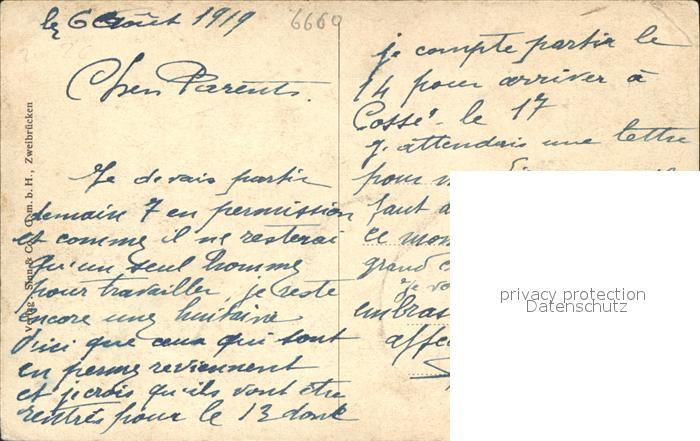 le 6 Août 1919
6660
Chers Parents.
Je devais partir
demain 7 en permission
et comme il ne resterai
qu'un seul homme
pour travailler, je reste
encore une huitaine
d'ici que ceux qui sont
en perme reviennent
et je crois qu'ils vont être
rentrés pour le 13 donc
je compte partir le
14 pour arriver à
Cossé le 17
J'attendais une lettre
pour
faut
ce
grand
Je
V
Sinn & Co., G. m. b. H., Zweibrücken
privacy protection
Datenschutz